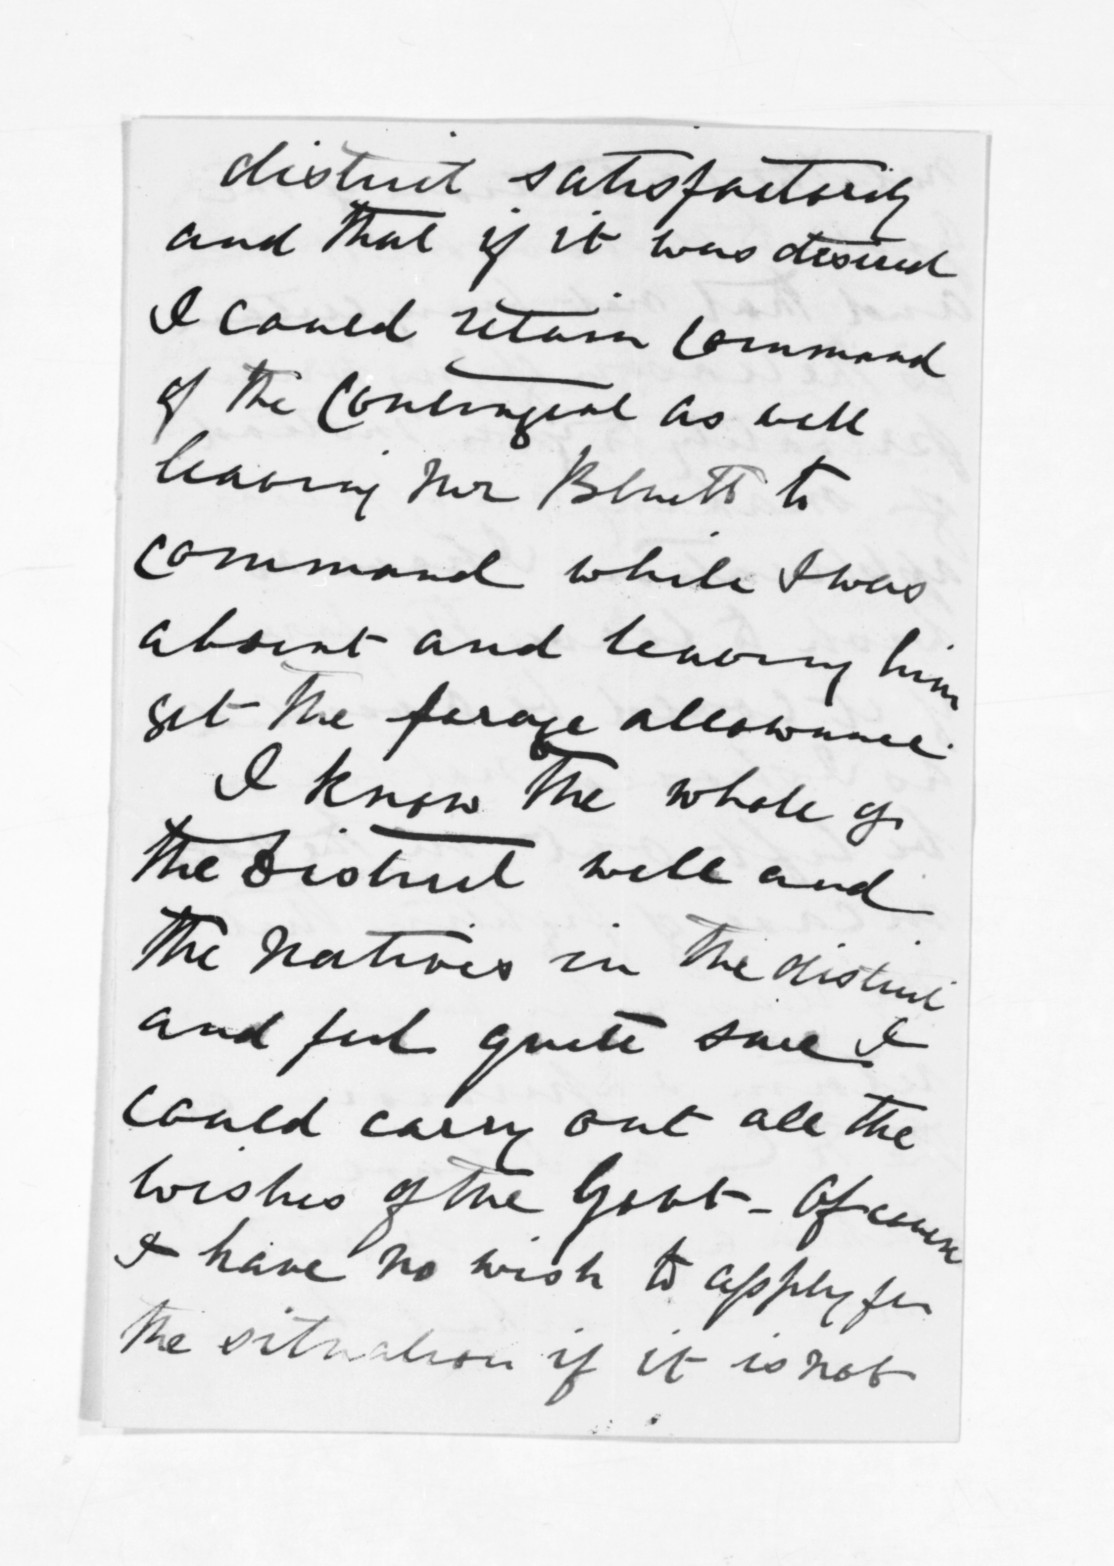 district satisfactorily
and that if it was desired
I could retain command
of the Contingent as well
leaving Mr Bluett to
command while I was
absent and leaving him
get the forage allowance.
I know the whole of
the District well and
the natives in the district
and feel quite sure I
could carry out all the
wishes of the Govt - Of course
I have no wish to apply for
the situation if it is not